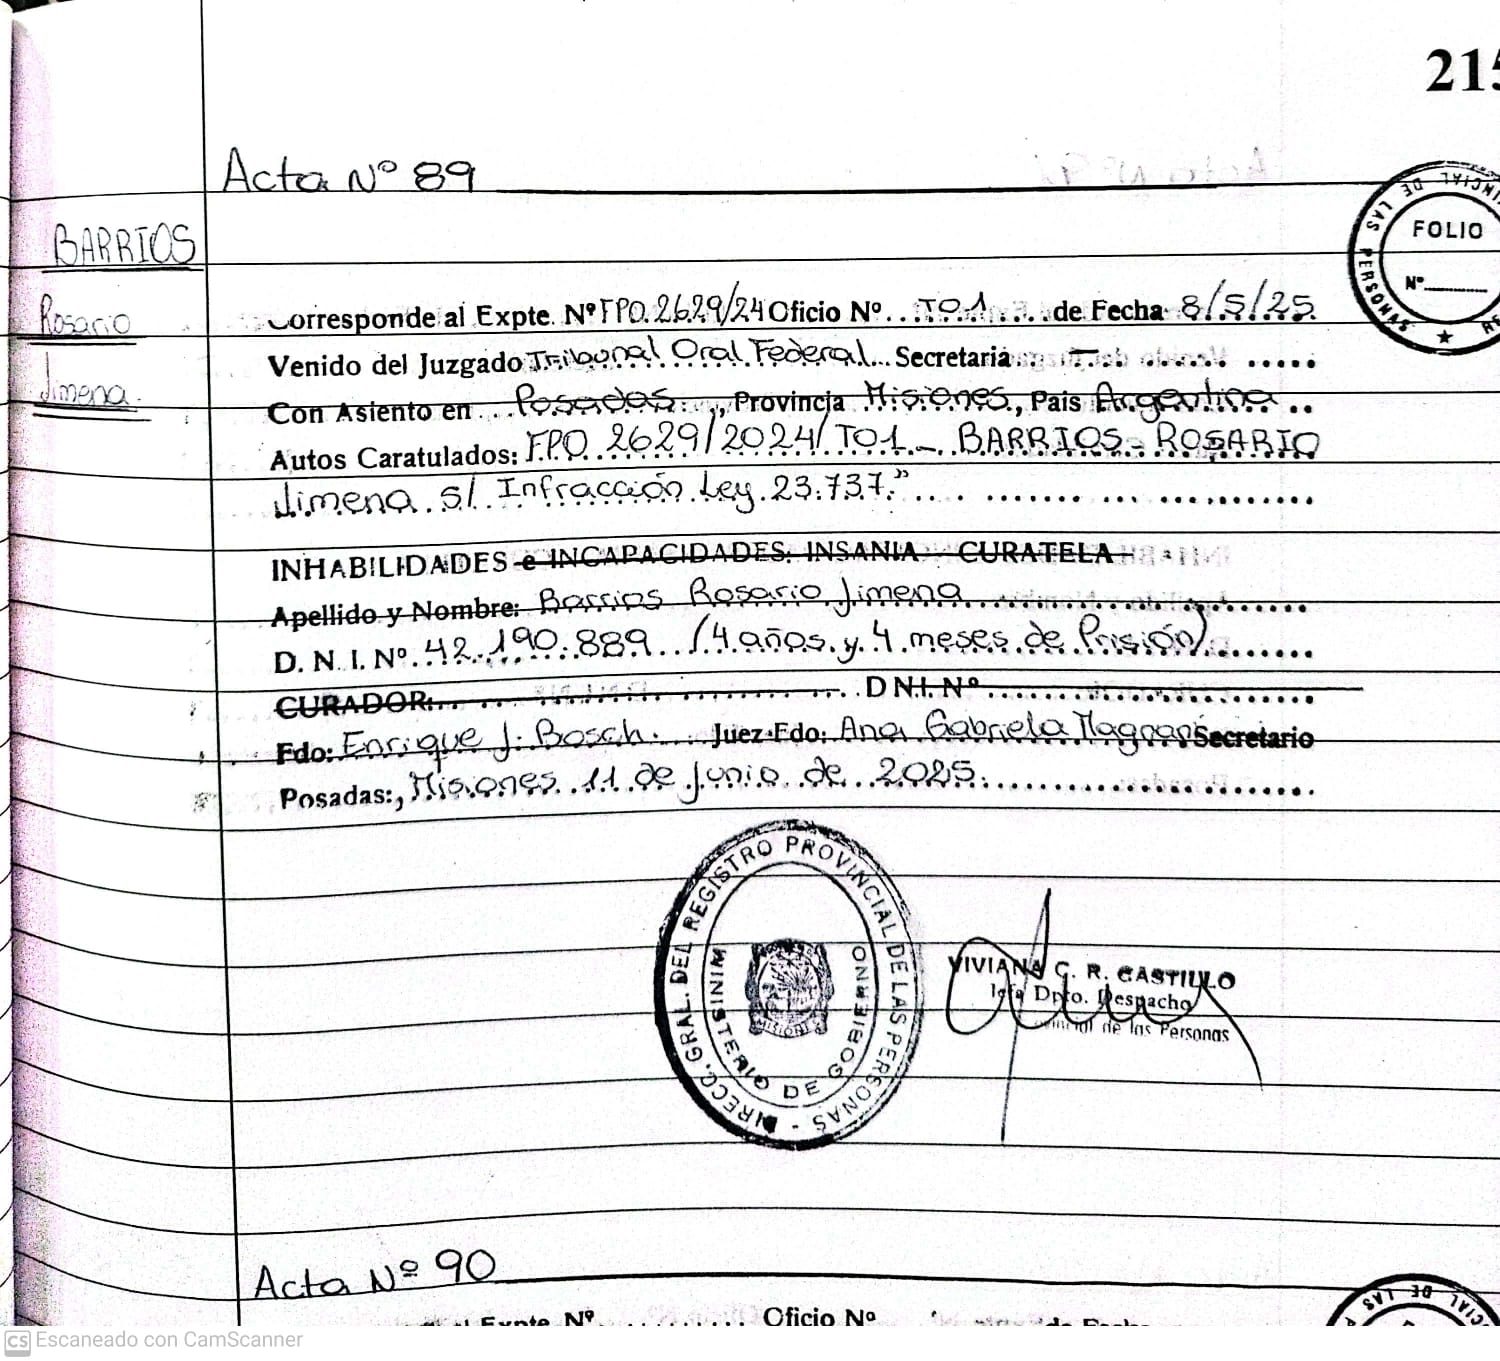 215
Acta Nº 89
BARRIOS
Rosario
Jimena.
FOLIO
Nº
DE LAS PERSONAS
Corresponde al Expte. Nº FPO.2629/24 Oficio Nº...T01...de Fecha 8/5/25
Venido del Juzgado Tribunal Oral Federal...Secretaria
Con Asiento en...Posadas..., Provincia Misiones, País Argentina
Autos Caratulados: F.P.O. 2629/2024/T01 - BARRIOS - ROSARIO
Jimena. s/. Infracción Ley. 23.737."
INHABILIDADES e INCAPACIDADES: INSANIA - CURATELA
Apellido y Nombre: Barrios Rosario Jimena
D. N. I. Nº. 42.190.889.. (4 años y 4 meses de Prisión)
CURADOR: D N.I. Nº
Fdo: Enrique J. Bosch. Juez Fdo: Ana Gabriela Secretario
Posadas:, Misiones 11 de Junio de 2025.
DIRECC. GRAL. DEL REGISTRO PROVINCIAL DE LAS PERSONAS -
MINISTERIO DE GOBIERNO
VIVIANA G. R. CASTILLO
Jefa Dpto. Despacho
de las Personas
Acta Nº 90
Expte Nº Oficio Nº de Fecha
DE LAS
CS Escaneado con CamScanner